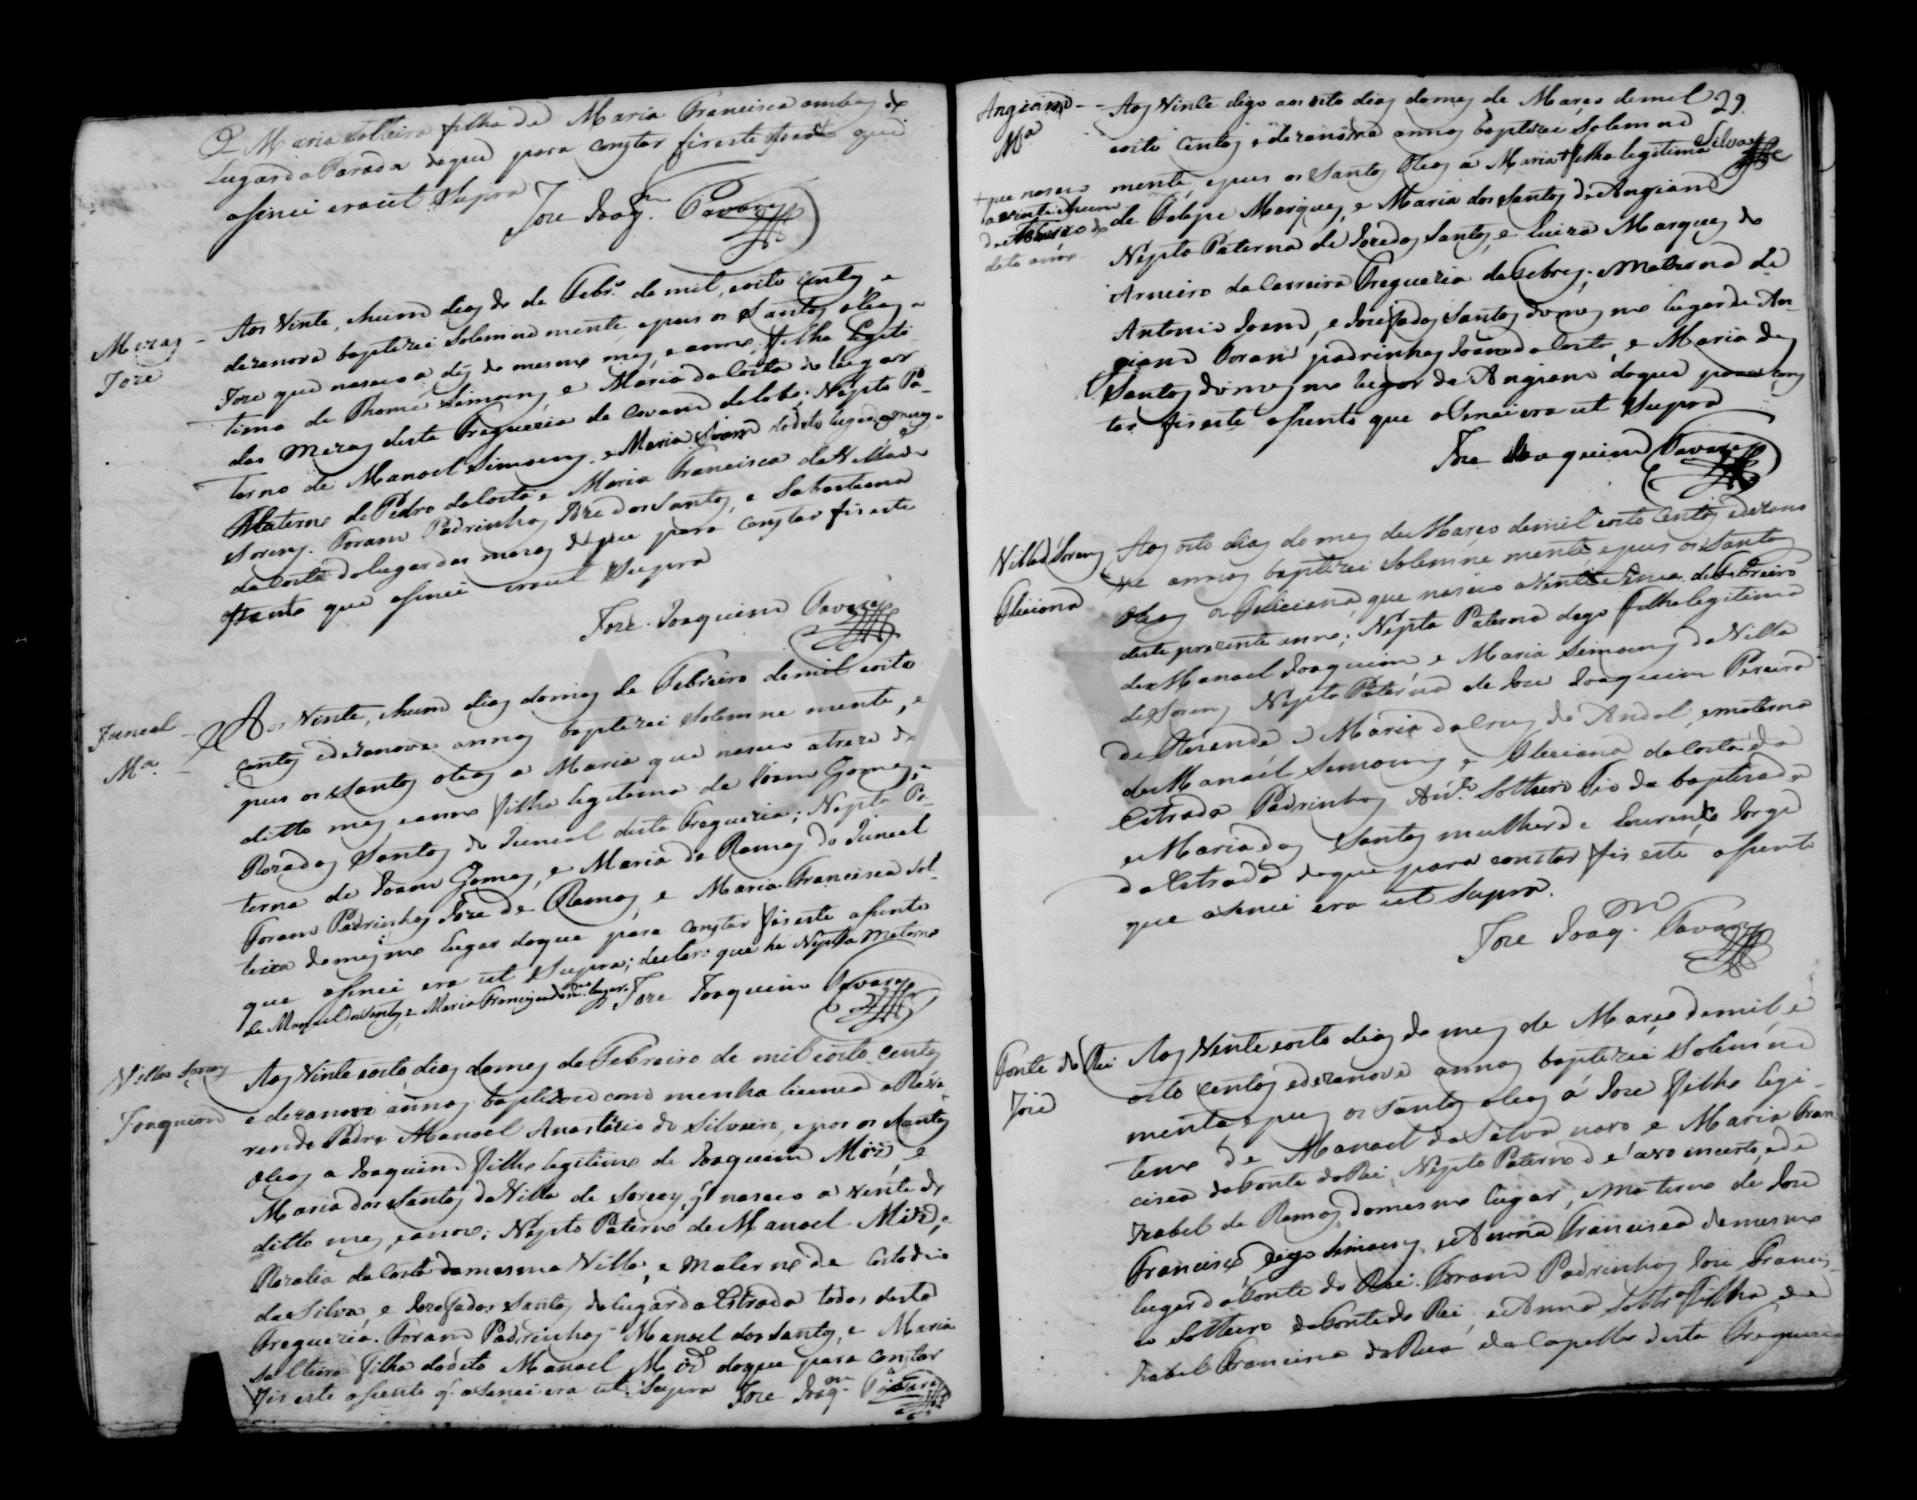 E Maria Solteira filha de Maria Francisca ambas do
Lugar da Parada doque para constar fis este que
asinei era ut supra
Jose Joaqm. Tavares
Mezas
Jose
Aos Vinte, hum dias do de Febro. de mil, oito centos, e
dezanove baptizei Solemne mente, epuis os Santos oleos a
Jose que nasceo a dez do mesmo mes, e anno filho legiti-
timo de Thome Simoens e Maria da Costa do lugar
das Mezas desta Freguezia de Covam do lobo; Nepto Pa-
terno de Manoel Simoens, e Maria Joam do dito lugar
Materno de Pedro da Costa e Maria Francisca da Villa de
Soreens. Foram Padrinhos Jose dos Santos, e Sabastiana
da Costa do lugar das mezas do que para constar fis este
asento que asinei era ut Supra
Jose Joaquim Tavares
Juncal
Ma.
Aos Vinte, hum dias domes de Febreiro demil oito
centos edezanove annos baptizei Solemne mente, e
puis os Santos oleos a Maria que nasceo atreze do
ditto mes eanno filha legitima de Joam Gomes, e
Roza dos Santos do Juncal desta Freguezia; Nepta Pa-
terna de Joam Gomes, e Maria de Ramos do Juncal
Foram Padrinhos Jose de Ramos, e Maria Francisca Sol-
teira domesmo lugar doque para constar fis este asento
que asinei era ut Supra; declaro que he Nepta Materna
de Manuel dos Santos, e Maria Francisca do mo. lugar. Jose Joaquim Tavares
Villa Soreens
Joaquim
Aos Vinte eoito dias domes de Febreiro de mil eoito centos
e dezanove annos baptizou com menha licenca o Reve-
rendo Padre Manoel Anastacio da Silveira, e pos os Santos
oleos a Joaquim filho legitimo de Joaquim Mizo, e
Maria dos Santos da Villa de Soreens, q nasceo a vinte do
ditto mes, eanno; Nepto Paterno de Manoel Mizo, e
Rozalia da Costa da mesma Villa, e Materno de Costodio
da Silva, e Jozefa dos Santos do lugar da Estrada todos desta
Freguezia. Foram Padrinhos Manoel dos Santos, e Maria
Solteira filha do dito Manoel Mizo doque para constar
fis este asento q. asinei era ut Supra Jose Joaqm. Tavares
29.
Silva
Angeiam
Ma
Aos Vinte digo aos oito dias domes de Março demil
oito Centos e dezanove annos baptizei Solemne
mente, epuis os Santos Oleos a Maria + filha legitima
+ que nasceo
a vinte ehum
de Febreiro do
dito anno
de Felepe Marques, e Maria dos Santos de Angeiam
Nepta Paterna de Joze dos Santos, e Luiza Marques do
Arneiro da Carreira Freguezia de Febres; e Materna de
Antonio Joam, e Jozefa dos Santos do mesmo lugar de An-
geiam Foram padrinhos Joam da Costa, e Maria dos
Santos do mesmo lugar de Angeiam doque para cons
tar fis este asento que asinei era ut Supra
Jose Joaquim Tavares
Villa de Soreens
Filiciana
Aos oito dias do mes de Março demil oito Centos e dezano
ve annos baptizei Solemne mente epuis os Santos
Oleos a Feliciana, que nasceo a Vinte e de Febreiro
deste prezente anno; Nepta Paterna digo filha legitima
de Manoel Joaquim e Maria Simoens da Villa
de Soreens Nepta Paterna de Jose Joaquim Pereira
de Rezende e Maria da Cruz de Andal, e materna
de Manoel Simoens e Filiciana da Costa da
Estrada Padrinhos Anto. Solteiro Tio da baptizada
e Maria dos Santos mulher de Lourenço Jorge
da Estrada doque para constar fis este asento
que asinei era ut supra.
Jose Joaqm. Tavares
Fonte do Rei
Jose
Aos Vinte eoito dias do mes de Março demil e
oito Centos edezanove annos baptizei Solemne
mente epus os Santos oleos a Jose filho legi-
timo de Manoel da Silva novo e Maria Fran-
cisca da Fonte do Rei; Nepto Paterno de avo incerto, e de
Izabel de Ramos domesmo lugar; Materno de Jose
Francisco digo Simoens, e Anna Francisca domesmo
lugar da Fonte do Rei. Foram Padrinhos Jose Francis-
co Solteiro da Fonte do Rei, e Anna Soltra. filha de
Izabel Francisca da Rua da Capella desta Freguezia